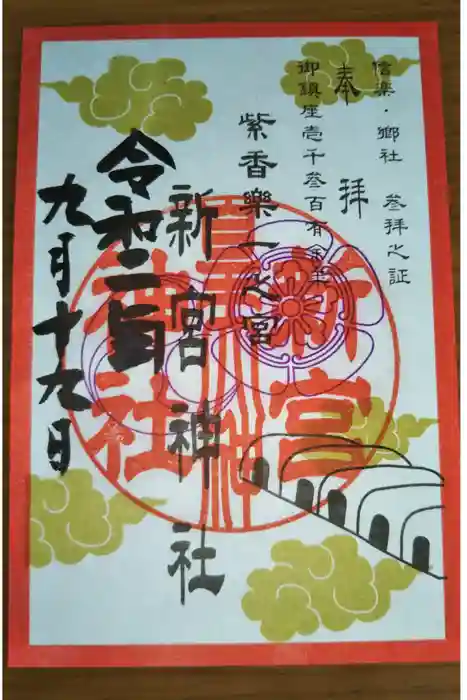 信楽・郷社 参拝之証
奉拝
御鎮座壱千参百有余年
紫香樂一之宮
新宮神社
令和二年
九月十九日
新宮
神社